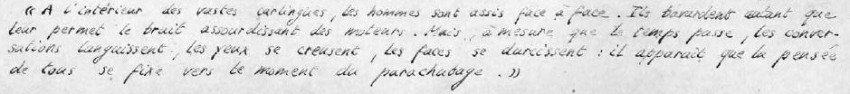 « A l'intérieur des vastes carlingues, les hommes sont assis face à face. Ils bavardent autant que
leur permet le bruit assourdissant des moteurs. Mais, à mesure que le temps passe, les conver-
sations languissent, les yeux se creusent, les faces se durcissent : il apparait que la pensée
de tous se fixe vers le moment du parachutage. »